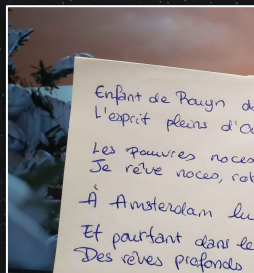 Enfant de Rouyn de
L'esprit pleins d'O
Les pauvres noces
Je rêve noces, rob
À Amsterdam lu
Et pourtant dans le
Des rêves profonds